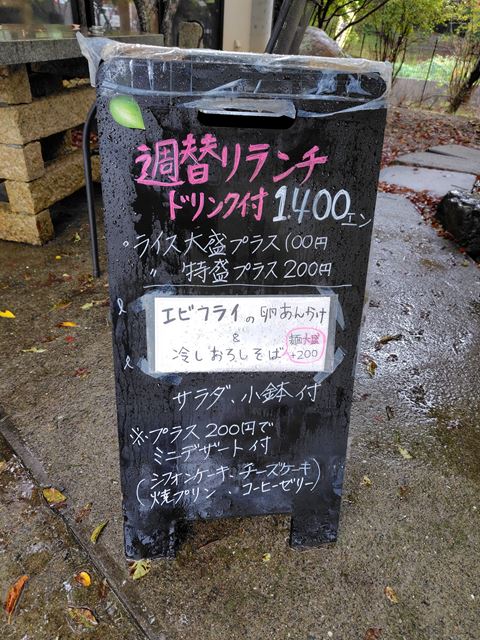 週替りランチ
ドリンク付 1400エン
・ライス大盛プラス100円
〃 特盛プラス200円
エビフライの卵あんかけ
&
冷しおろしそば
麺大盛
+200
サラダ、小鉢付
※プラス200円で
ミニデザート付
(シフォンケーキ、チーズケーキ
焼プリン、コーヒーゼリー)